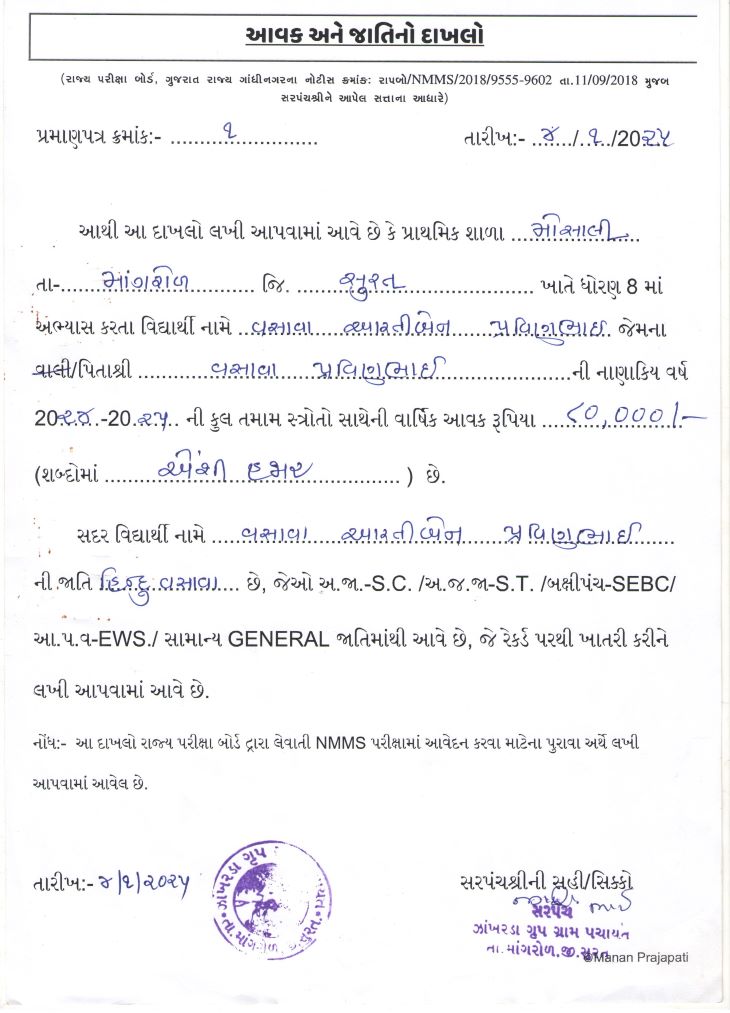 આવક અને જાતિનો દાખલો
(રાજ્ય પરીક્ષા બોર્ડ, ગુજરાત રાજ્ય ગાંધીનગરના નોટીસ ક્રમાંક: રાપબો/NMMS/2018/9555-9602 તા.11/09/2018 મુજબ
સરપંચશ્રીને આપેલ સત્તાના આધારે)
પ્રમાણપત્ર ક્રમાંક:- ......૧...... તારીખ:- ..૪../..૧../20૨૫
આથી આ દાખલો લખી આપવામાં આવે છે કે પ્રાથમિક શાળા ...મોસાલી...
તા-......માંગરોળ...... જિ. ......સુરત...... ખાતે ધોરણ 8 માં
અભ્યાસ કરતા વિદ્યાર્થી નામે ..વસાવા આરતીબેન પ્રવિણભાઈ.. જેમના
વાલી/પિતાશ્રી ......વસાવા પ્રવિણભાઈ......ની નાણાકિય વર્ષ
20૨૪.-20.૨૫.. ની કુલ તમામ સ્ત્રોતો સાથેની વાર્ષિક આવક રૂપિયા ...૮૦,૦૦૦/-
(શબ્દોમાં ......એંશી હજાર...... ) છે.
સદર વિદ્યાર્થી નામે ...વસાવા આરતીબેન પ્રવિણભાઈ...
ની જાતિ હિન્દુ વસાવા.... છે, જેઓ અ.જા.-S.C. /અ.જ.જા-S.T. /બક્ષીપંચ-SEBC/
આ.પ.વ-EWS./ સામાન્ય GENERAL જાતિમાંથી આવે છે, જે રેકર્ડ પરથી ખાતરી કરીને
લખી આપવામાં આવે છે.
નોંધ:- આ દાખલો રાજ્ય પરીક્ષા બોર્ડ દ્વારા લેવાતી NMMS પરીક્ષામાં આવેદન કરવા માટેના પુરાવા અર્થે લખી
આપવામાં આવેલ છે.
તારીખ:- ૪/૧/૨૦૨૫
ઝાંખરડા ગૃપ
તા.માંગરોળ
સરપંચશ્રીની સહી/સિક્કો
સરપંચ
ઝાંખરડા ગૃપ ગ્રામ પંચાયત
તા.માંગરોળ,જી.સુરત
©Manan Prajapati